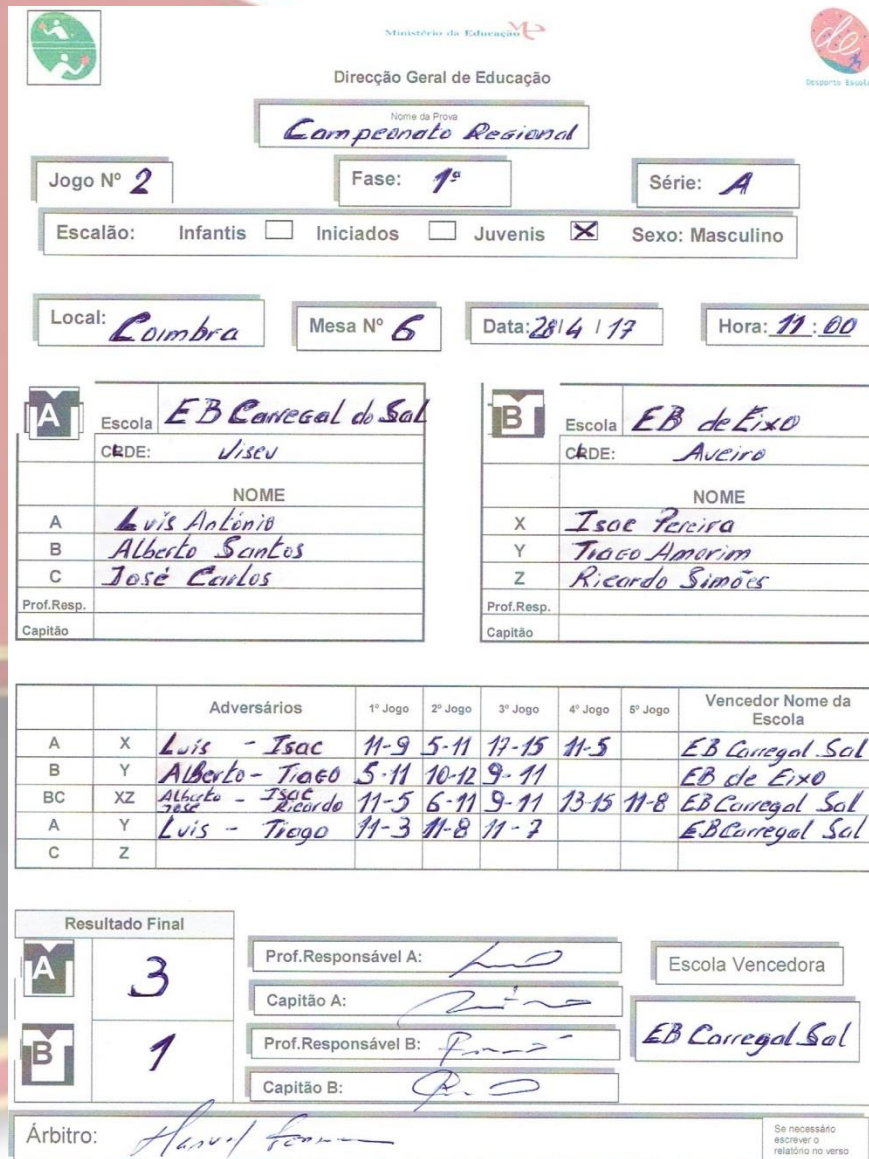 Ministério da Educação
Direcção Geral de Educação
Desporto Escolar
Nome da Prova
Campeonato Regional
Jogo Nº 2 Fase: 1ª Série: A
Escalão: Infantis Iniciados Juvenis X Sexo: Masculino
Local: Coimbra Mesa Nº 6 Data: 28/4/17 Hora: 11:00
A Escola EB Carregal do Sal
CLDE: Viseu
NOME
A Luis António
B Alberto Santos
C José Carlos
Prof.Resp.
Capitão
B Escola EB de Eixo
CLDE: Aveiro
NOME
X Isac Pereira
Y Tiago Amorim
Z Ricardo Simões
Prof.Resp.
Capitão
Adversários 1º Jogo 2º Jogo 3º Jogo 4º Jogo 5º Jogo Vencedor Nome da Escola
A X Luis - Isac 11-9 5-11 17-15 11-5 EB Carregal Sal
B Y Alberto - Tiago 5-11 10-12 9-11 EB de Eixo
BC XZ Alberto José - Isac Ricardo 11-5 6-11 9-11 13-15 11-8 EB Carregal Sal
A Y Luis - Tiago 11-3 11-8 11-7 EB Carregal Sal
C Z
Resultado Final
A 3
B 1
Prof.Responsável A:
Capitão A:
Prof.Responsável B:
Capitão B:
Escola Vencedora
EB Carregal Sal
Árbitro: Manuel
Se necessário
escrever o
relatório no verso